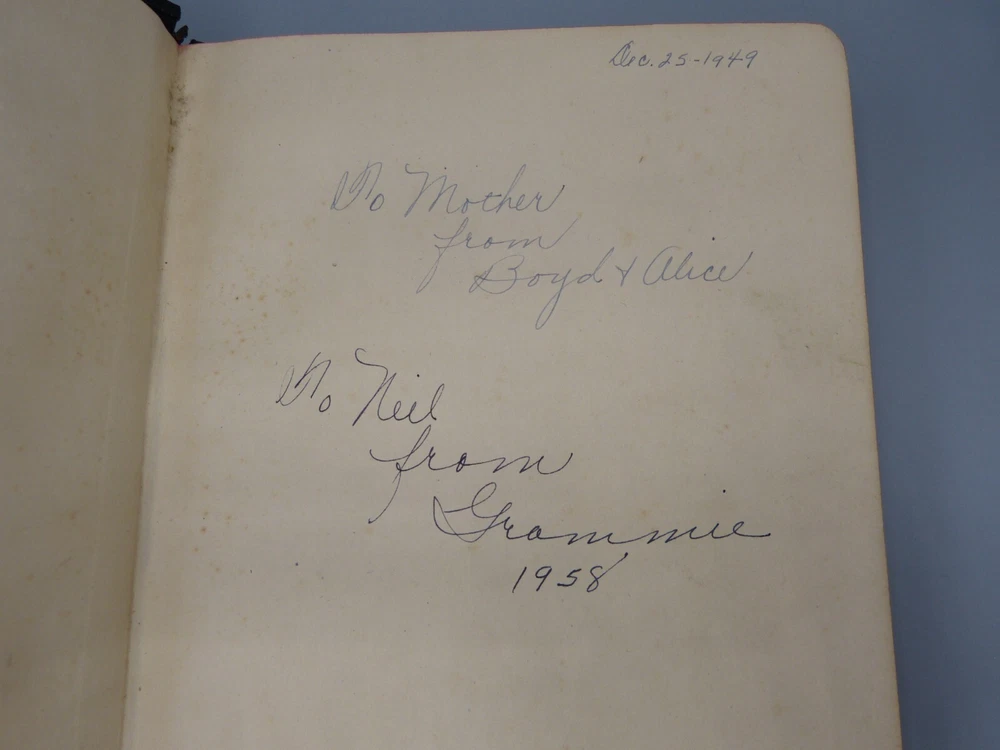 Dec. 25-1949
To Mother
from
Boyd & Alice
To Neil
from
Grammie
1958